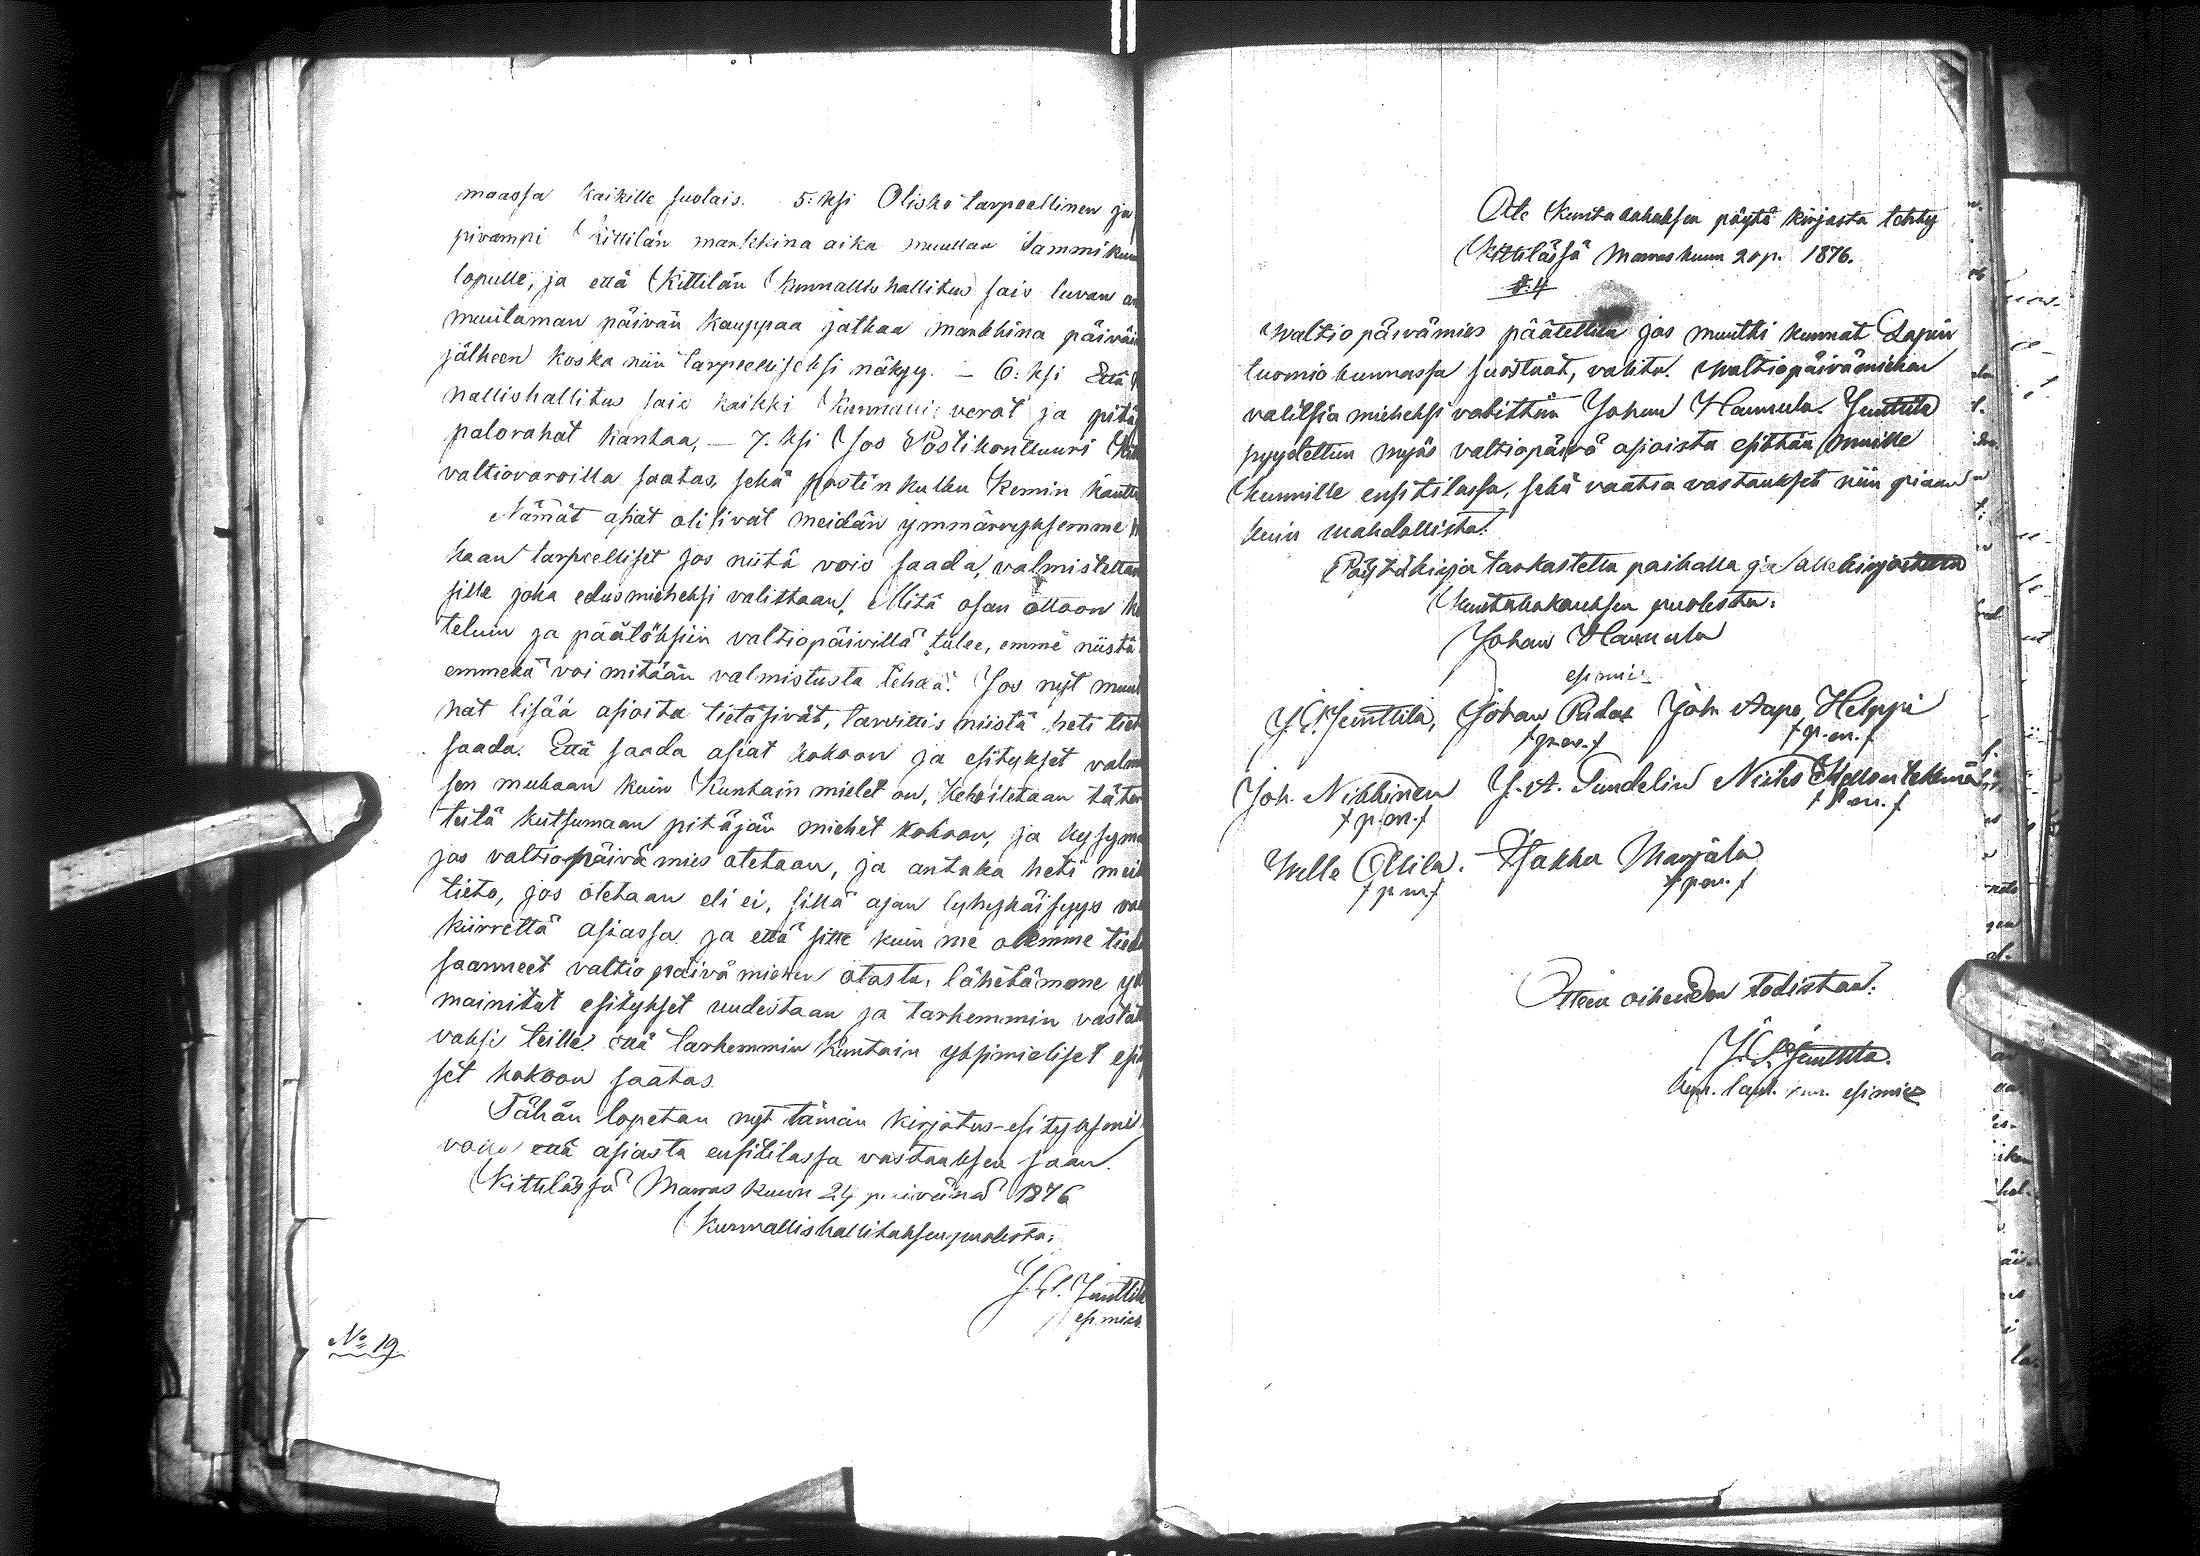 maassa kaikille suolais. 5:ksi Olisko tarpeellinen ja
pivampi Kittilän markkina aika muuttaa Tammikuu
lopulle, ja että Kittilän Kunnallishallitus sais luvan
muutaman päivän kauppaa jatkaa markkina päiväin
jälkeen koska niin tarpeelliseksi näkyy. — 6:ksi Että
nallishallitus sais kaikki Kunnallis verot ja pitä
palorahat kantaa, — 7.ksi Jos Postikonttuuri
valtiovaroilla saatas, sekä postin kulku Kemin kautta
Nämät asiat olisivat meidän ymmärryksemme
kaan tarpeelliset jos niitä vois saada, valmistettaa
sille joka edusmieheksi valittaan, Mitä osan ottoon
teluin ja päätöksiin valtiopäivillä tulee, emme niistä
emmekä voi mitään valmistusta tehdä. Jos nyt muut
nat lisää asioita tietäsivät, tarvittis niistä heti tiet
saada. Että saada asiat kokoon ja esitykset valm
sen mukaan kuin Kuntain mielet on, Kehoitetaan täten
teitä kutsumaan pitäjän miehet kokoon, ja kysymä
jos valtiopäivä mies otetaan, ja antaka heti meil
tieto, jos otetaan eli ei, sillä ajan lyhykäisyys vaa
kiirrettä asiassa ja että sitte kuin me olemme tied
saanneet valtiopäivä miehen otosta, lähetämme yl
mainitut esitykset uudestaan ja tarkemmin vastat
vaksi teille että tarkemmin Kuntain yksimieliset esi
set kokoon saatas.
Tähän lopetan nyt tämän kirjotus-esitykseni
että asiasta ensitilassa vastauksen saan.
Kittilässä Marraskuun 24 päivänä 1876
Kunnallishallituksen puolesta:
J. E. Junttil
esimies.
No 19.
Ote Kuntakokouksen pöytä kirjasta tehty
Kittilässä Marraskuun 20 p. 1876.
§.4
Waltiopäivämies päätettiin jos muutki kunnat Lapin
tuomiokunnassa suostuut, valita. Waltiopäivämiehen
valitsia mieheksi valittiin Johan Hannula. Junttila
pyydettiin myös valtiopäivä asioista esittää muille
kunnille ensitilassa, sekä vaatia vastaukset niin pian
kuin mahdollista.
Pöytäkirja tarkastettu paikalla ja allekirjoitettu
Kuntakokouksen puolesta:
Johan Hannula
esimies
J. E. Junttila, Johan Ridas Joh. Aapo Helppi
p. m. p. m.
Joh. Nikkinen J. A. Sundelin Niilo
p. m. p. m.
Wille Ollila. Jakku Marjala
p. m. p. m.
Otteen oikeuden todistaa:
J. E. Junttila.
esimies